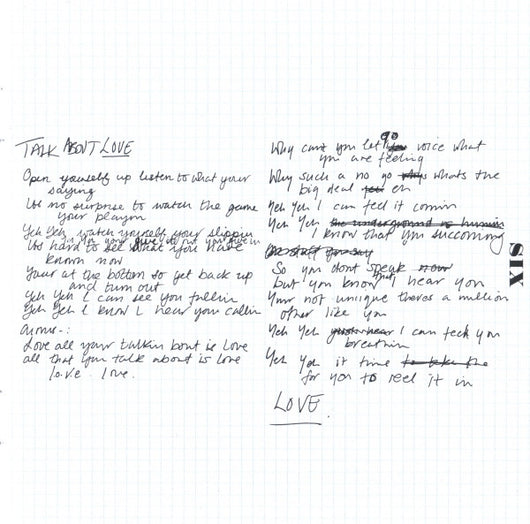 TALK ABOUT LOVE
Open yourself up listen to what your
saying
Its no surprise to watch the game
your playin
Yeh Yeh watch yourself your slippin
Its hard to see what you have
known now
Your at the bottom so get back up
and turn out
Yeh Yeh I can see you fallin
Yeh Yeh I know I hear you callin
Love all your talkin bout is Love
all that you talk about is love
love. love.
Why cant you let go voice what
you are feeling
Why such a no go whats the
big deal eh
Yeh Yeh I can feel it comin
Yeh Yeh the underground is hummin
I know that you succoming
So you dont speak now
but you know that I hear you
Your not uniigue theres a million
other like you
Yeh Yeh I can feel you
breathin
Yeh Yeh it time to take the
for you to reel it in
LOVE.
SIX